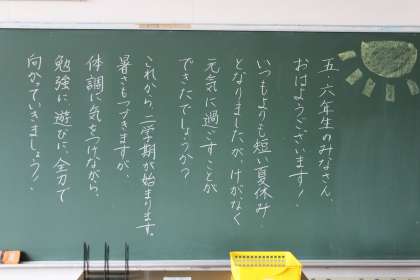 五・六年生のみなさん、
おはようございます！
いつもよりも短い夏休み
となりましたが、けがなく
元気に過ごすことが
できたでしょうか？
これから、二学期が始まります。
暑さもつづきますが、
体調に気をつけながら、
勉強に遊びに、全力で
向かっていきましょう！